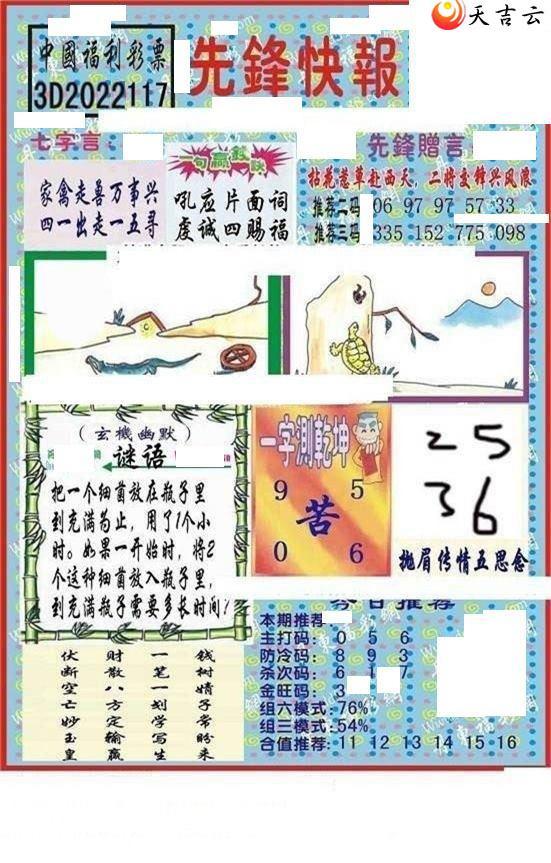 天吉云
中國福利彩票
3D2022117
先鋒快報
七字言:
家禽走喜万事兴
四一出走一五寻
一句赢錢訣
吼应片面词
虔诚四赐福
先鋒赠言:
拈花惹草赴西天,二将交锋兴风浪
推荐二码 06 97 97 57 33
推荐三码 335 152 775 098
(玄機幽默)
谜语
把一个细菌放在瓶子里
到充满为止,用了1个小
时。如果一开始时,将2
个这种细菌放入瓶子里,
到充满瓶子需要多长时间?
一字測乾坤
9 5
苦
0 6
25
36
抛眉传情五思念
今日推荐
本期推荐
主打码: 0 5 6
防冷码: 8 9 3
杀次码: 6 1 7
金旺码: 3
组六模式:76%
组三模式:54%
合值推荐:11 12 13 14 15 16
伏 财 一 钱
断 散 笔 树
空 八 一 婧
亡 方 划 子
妙 定 学 常
玉 输 写 盼
皇 赢 生 来